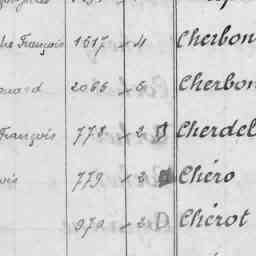 François 1517 - 4 Cherbon
ouard 2065 - 5 Cherbon
François 778 - 2 Cherdel
779 - 2 Chéro
979 - 2 Chérot